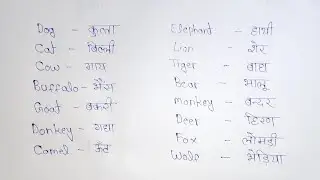 Dog - कुत्ता
Cat - बिल्ली
Cow - गाय
Buffalo - भैंस
Goat - बकरी
Donkey - गधा
Camel - ऊँट
Elephant - हाथी
Lion - शेर
Tiger - बाघ
Bear - भालू
monkey - बन्दर
Deer - हिरण
Fox - लोमड़ी
Wolf - भेड़िया